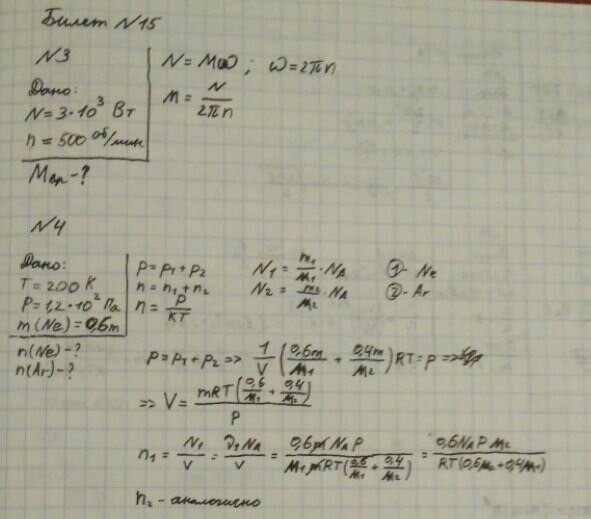 Билет N15
N3
Дано:
N = 3·10³ Вт
n = 500 об/мин
Mвр - ?
N = Mω ; ω = 2πn
M = N/2πn
N4
Дано:
T = 200 K
P = 1,2·10² Па
m(Ne) = 0,6m
n(Ne) - ?
n(Ar) - ?
p = p₁ + p₂
n = n₁ + n₂
n = p/кT
N₁ = m₁/M₁ · NA
N₂ = m₂/M₂ · NA
① - Ne
② - Ar
p = p₁ + p₂ => 1/V (0,6m/M₁ + 0,4m/M₂) RT = p =>
=> V = mRT(0,6/M₁ + 0,4/M₂)/p
n₁ = N₁/V = ν₁NA/V = 0,6mNAP/M₁mRT(0,6/M₁ + 0,4/M₂) = 0,6NAPM₂/RT(0,6M₂ + 0,4M₁)
n₂ - аналогично